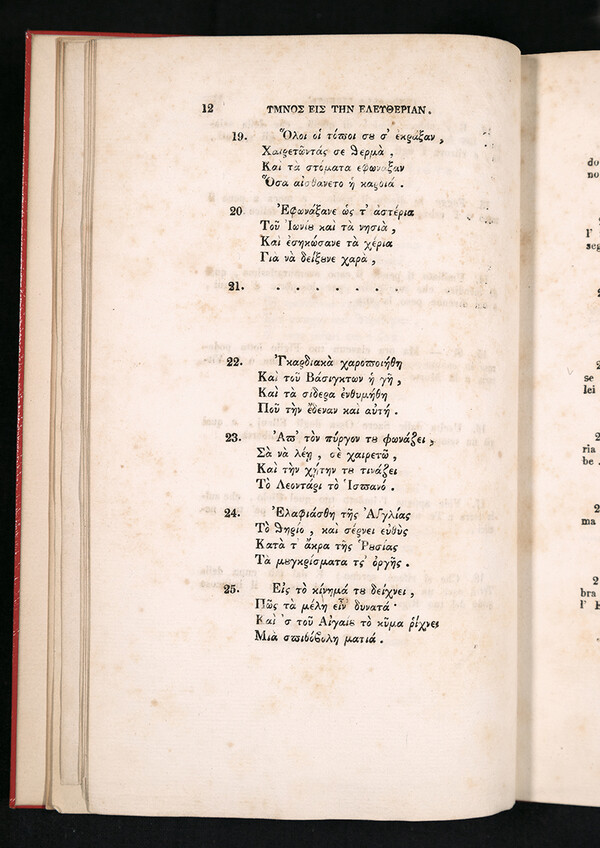 12 ΥΜΝΟΣ ΕΙΣ ΤΗΝ ΕΛΕΥΘΕΡΙΑΝ.
19. Ὅλοι οἱ τόποι σȣ σ' ἐκράξαν,
Χαιρετῶντάς σε θερμὰ,
Καὶ τὰ στόματα ἐφωνάξαν
Ὅσα αἰσθάνετο ἡ καρδιά.
20 Ἐφωνάξανε ὡς τ' ἀστέρια
Τοῦ Ἰονίȣ καὶ τὰ νησιὰ,
Καὶ ἐσηκώσανε τὰ χέρια
Γιὰ νὰ δείξȣνε χαρὰ,
21. . . . . . . .
22. Ἐγκαρδιακὰ χαροποιήθη
Καὶ τοῦ Βάσιγκτων ἡ γῆ,
Καὶ τὰ σίδερα ἐνθυμήθη
Ποῦ τὴν ἔδεναν καὶ αὐτή.
23. Ἀπ' τὸν πύργον τȣ φωνάζει,
Σὰ νὰ λέῃ, σὲ χαιρετῶ,
Καὶ τὴν χήτην τȣ τινάζει
Τὸ Λεοντάρι τὸ Ἱσπανό.
24. Ἐλαφιάσθη τῆς Ἀγγλίας
Τὸ θηρίο, καὶ σέρνει εὐθὺς
Κατὰ τ' ἄκρα τῆς Ῥȣσίας
Τὰ μȣγκρίσματα τς' ὀργῆς.
25. Εἰς τὸ κίνημά τȣ δείχνει,
Πῶς τὰ μέλη εἶν' δυνατά·
Καὶ 'ς τοῦ Αἰγαίȣ τὸ κῦμα ῥίχνει
Μιὰ σπιθόβολη ματιά.
do
no
l'
seg
se
lei
ria
be.
ma
bra
l'